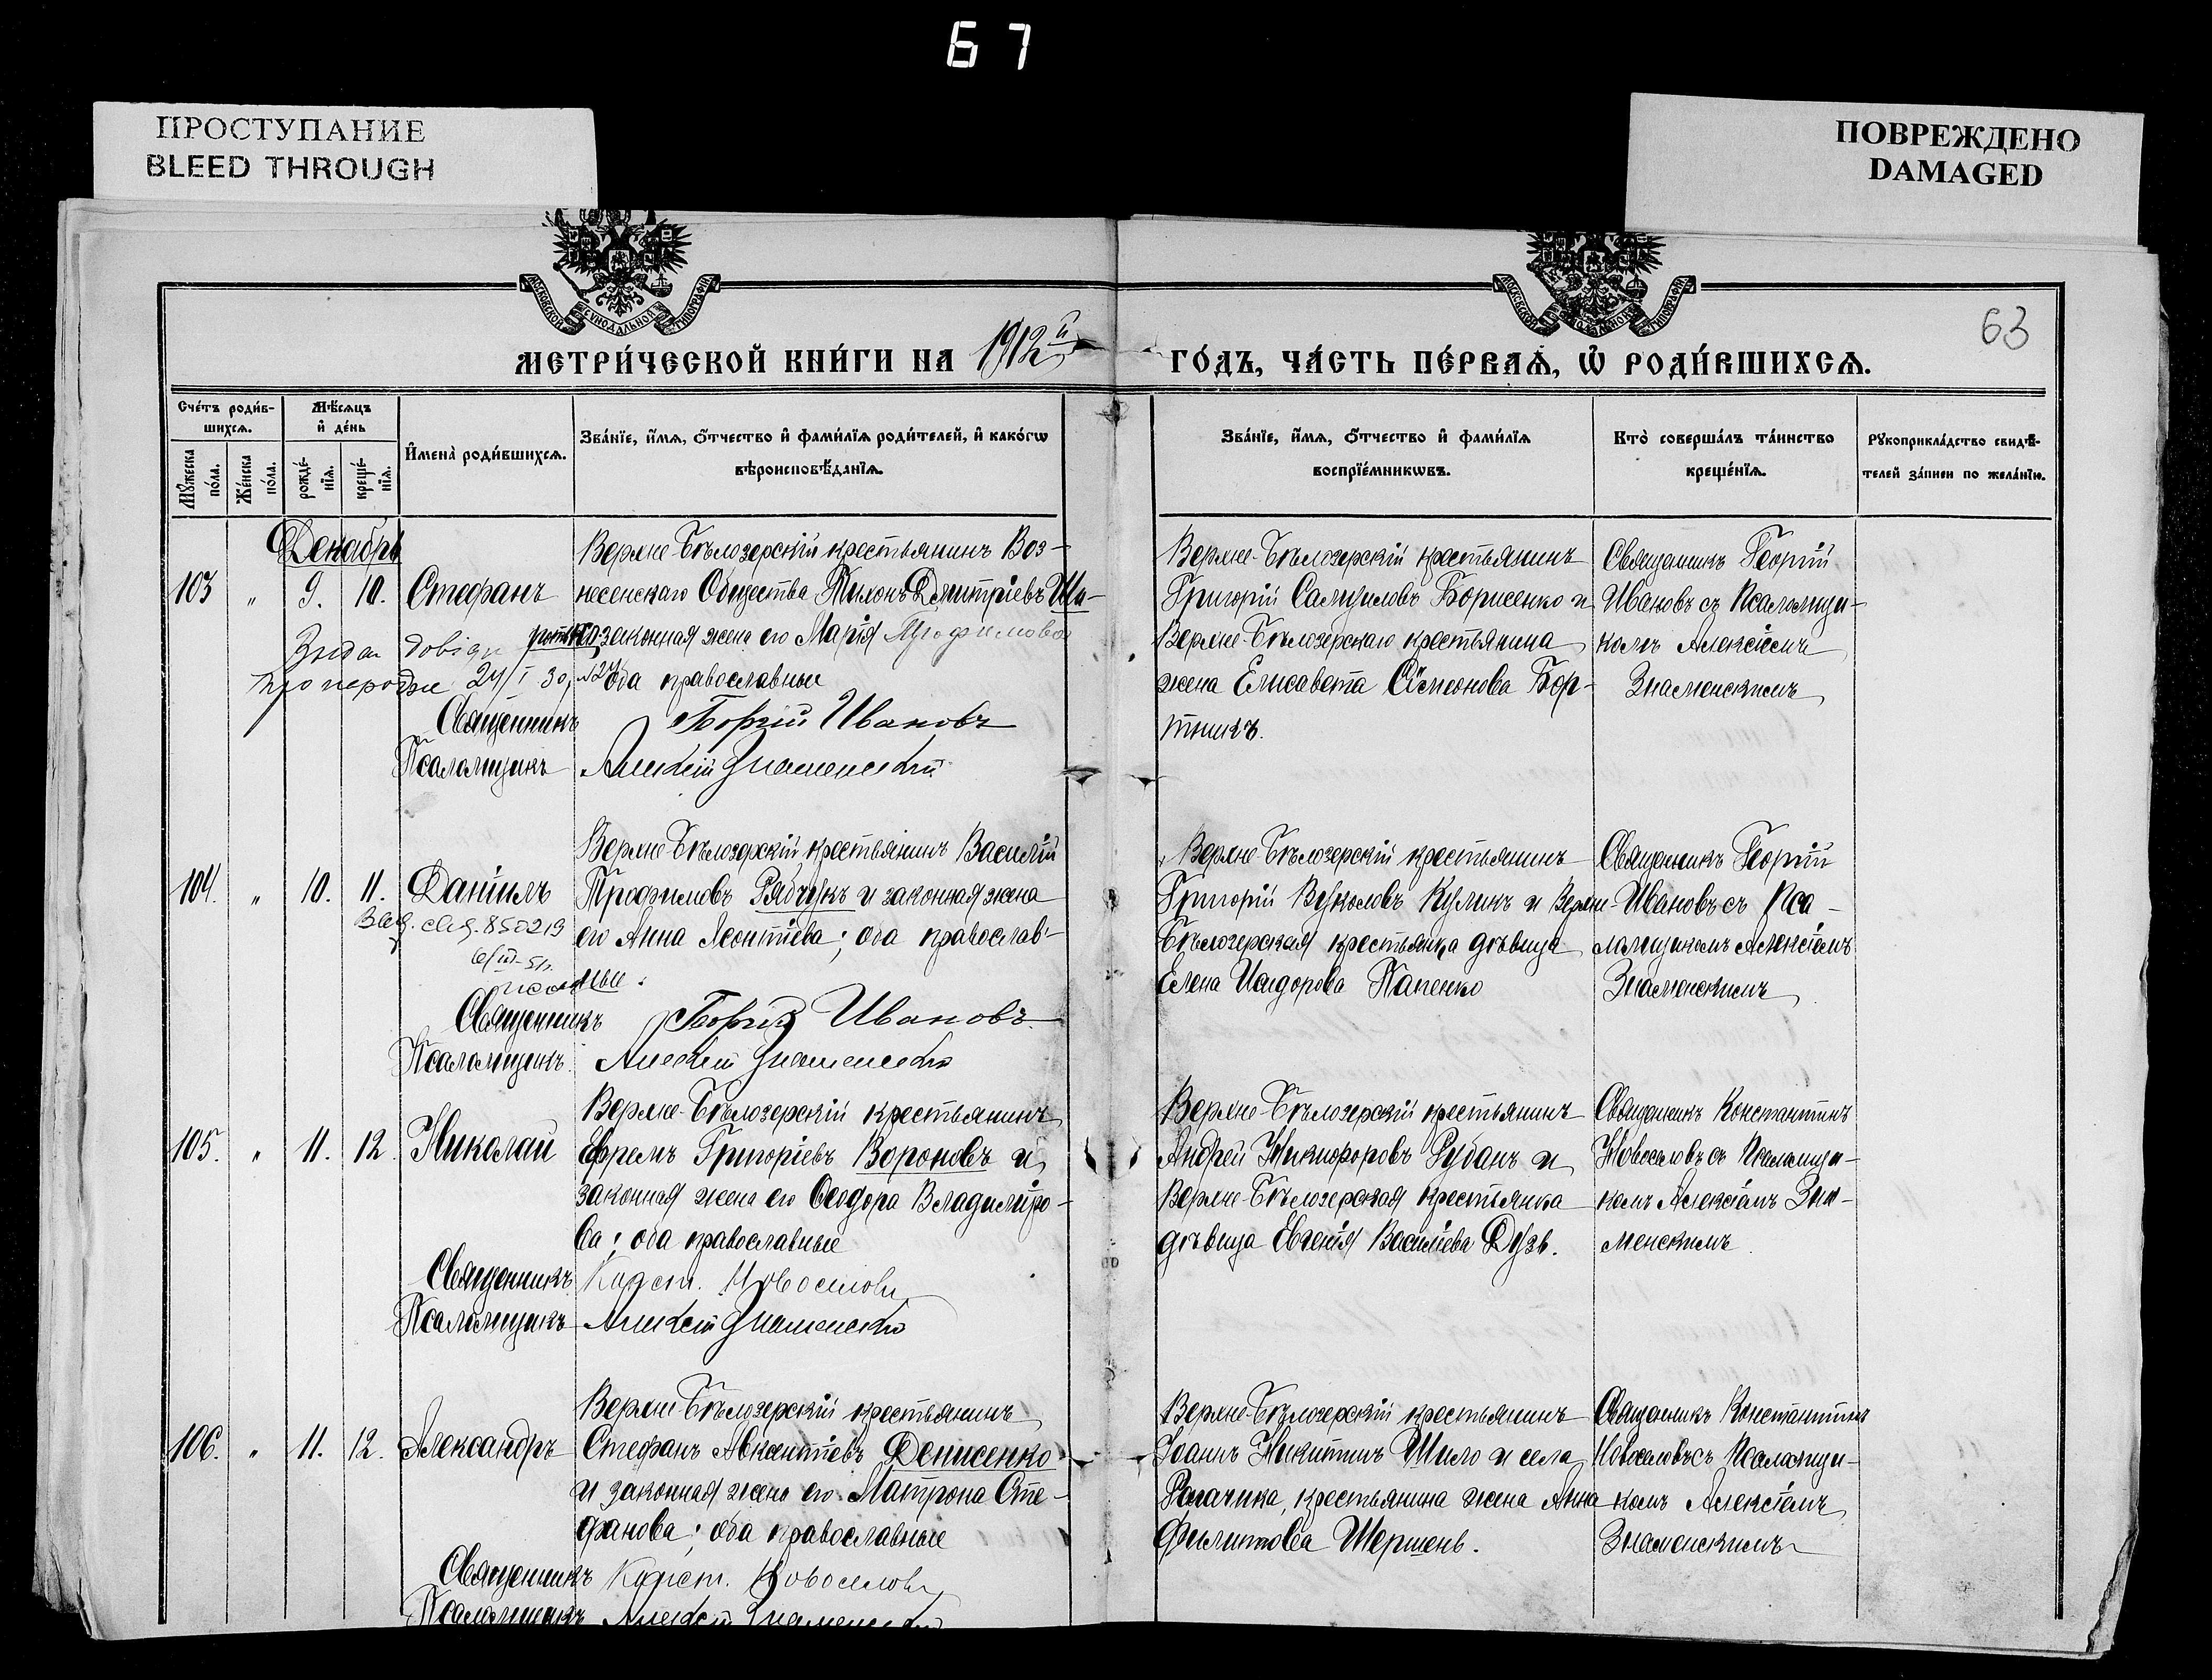 67
ПРОСТУПАНИЕ
BLEED THROUGH
ПОВРЕЖДЕНО
DAMAGED
МОСКОВСКОЙ СѴНОДАЛЬНОЙ ТИПОГРАФІИ
МОСКОВСКОЙ СѴНОДАЛЬНОЙ ТИПОГРАФІИ
63
МЕТРИ́ЧЕСКОЙ КНИ́ГИ НА 1912й ГО́ДЪ, ЧА́СТЬ ПЕ́РВАѦ, Ѡ РОДИ́ВШИХСѦ.
Сче́тъ роди́в-
шихсѧ.
Мѣ́сѧцъ
и де́нь
Мꙋ́жеска по́ла.
Же́нска по́ла.
рожде́-
нїѧ.
креще́-
нїѧ.
И҆мена̀ роди́вшихсѧ.
Зва́нїе, и҆́мѧ, ѻ҆́тчество и҆ фами́лїѧ роди́телей, и҆ како́гѡ
вѣроисповѣ́данїѧ.
Зва́нїе, и҆́мѧ, ѻ҆́тчество и҆ фами́лїѧ
воспрїе́мникѡвъ.
Кто̀ соверша́лъ та́инство
креще́нїѧ.
Рꙋкоприкла́дство свидѣ́-
телей за́писи по жела́нїю.
Декабрь
103 " 9. 10. Стефанъ
Верхне-Бѣлозерскій крестьянинъ Воз-
несенскаго Общества Тихонъ Дмитріевъ Ши-
законная жена его Марія Трофимова
оба православные
Видан
про народже 24/I 30
Священникъ Георгій Ивановъ
Псаломщикъ Алексій Знаменскій
Верхне-Бѣлозерскій крестьянинъ
Григорій Самуиловъ Борисенко и
Верхне-Бѣлозерскаго крестьянина
жена Елисавета Сімеонова Бор-
тникъ.
Священникъ Георгій
Ивановъ съ Псаломщи-
комъ Алексіемъ
Знаменскимъ
104. " 10. 11. Даніилъ
Верхне-Бѣлозерскій крестьянинъ Василій
Трофимовъ Рябчукъ и законная жена
его Анна Леонтіева; оба православ-
ные.
850219
Священникъ Георгій Ивановъ
Псаломщикъ Алексій Знаменскій
Верхне-Бѣлозерскій крестьянинъ
Григорій Вуколовъ Куликъ и Верхне-
Бѣлозерская крестьянка дѣвица
Елена Исидорова Папенко
Священникъ Георгій
Ивановъ съ Пса-
ломщикомъ Алексіемъ
Знаменскимъ
105. " 11. 12. Николай
Верхне-Бѣлозерскій крестьянинъ
Ефремъ Григоріевъ Вороновъ и
законная жена его Ѳеодора Владиміро-
ва; оба православные
Священникъ Конст. Новоселовъ
Псаломщикъ Алексій Знаменскій
Верхне-Бѣлозерскій крестьянинъ
Андрей Никифоровъ Рубанъ и
Верхне-Бѣлозерская крестьянка
дѣвица Евгенія Василіева Дузь.
Священникъ Константинъ
Новоселовъ съ Псаломщи-
комъ Алексіемъ Зна-
менскимъ
106. " 11. 12. Александръ
Верхне-Бѣлозерскій крестьянинъ
Стефанъ Авксентіевъ Денисенко
и законная жена его Матрона Сте-
фанова; оба православные
Священникъ Конст. Новоселовъ
Псаломщикъ Алексій Знаменскій
Верхне-Бѣлозерскій крестьянинъ
Іоаннъ Никитинъ Шило и села
Рогачика, крестьянина жена Анна
Филиппова Шершень.
Священникъ Константинъ
Новоселовъ съ Псаломщи-
комъ Алексіемъ
Знаменскимъ